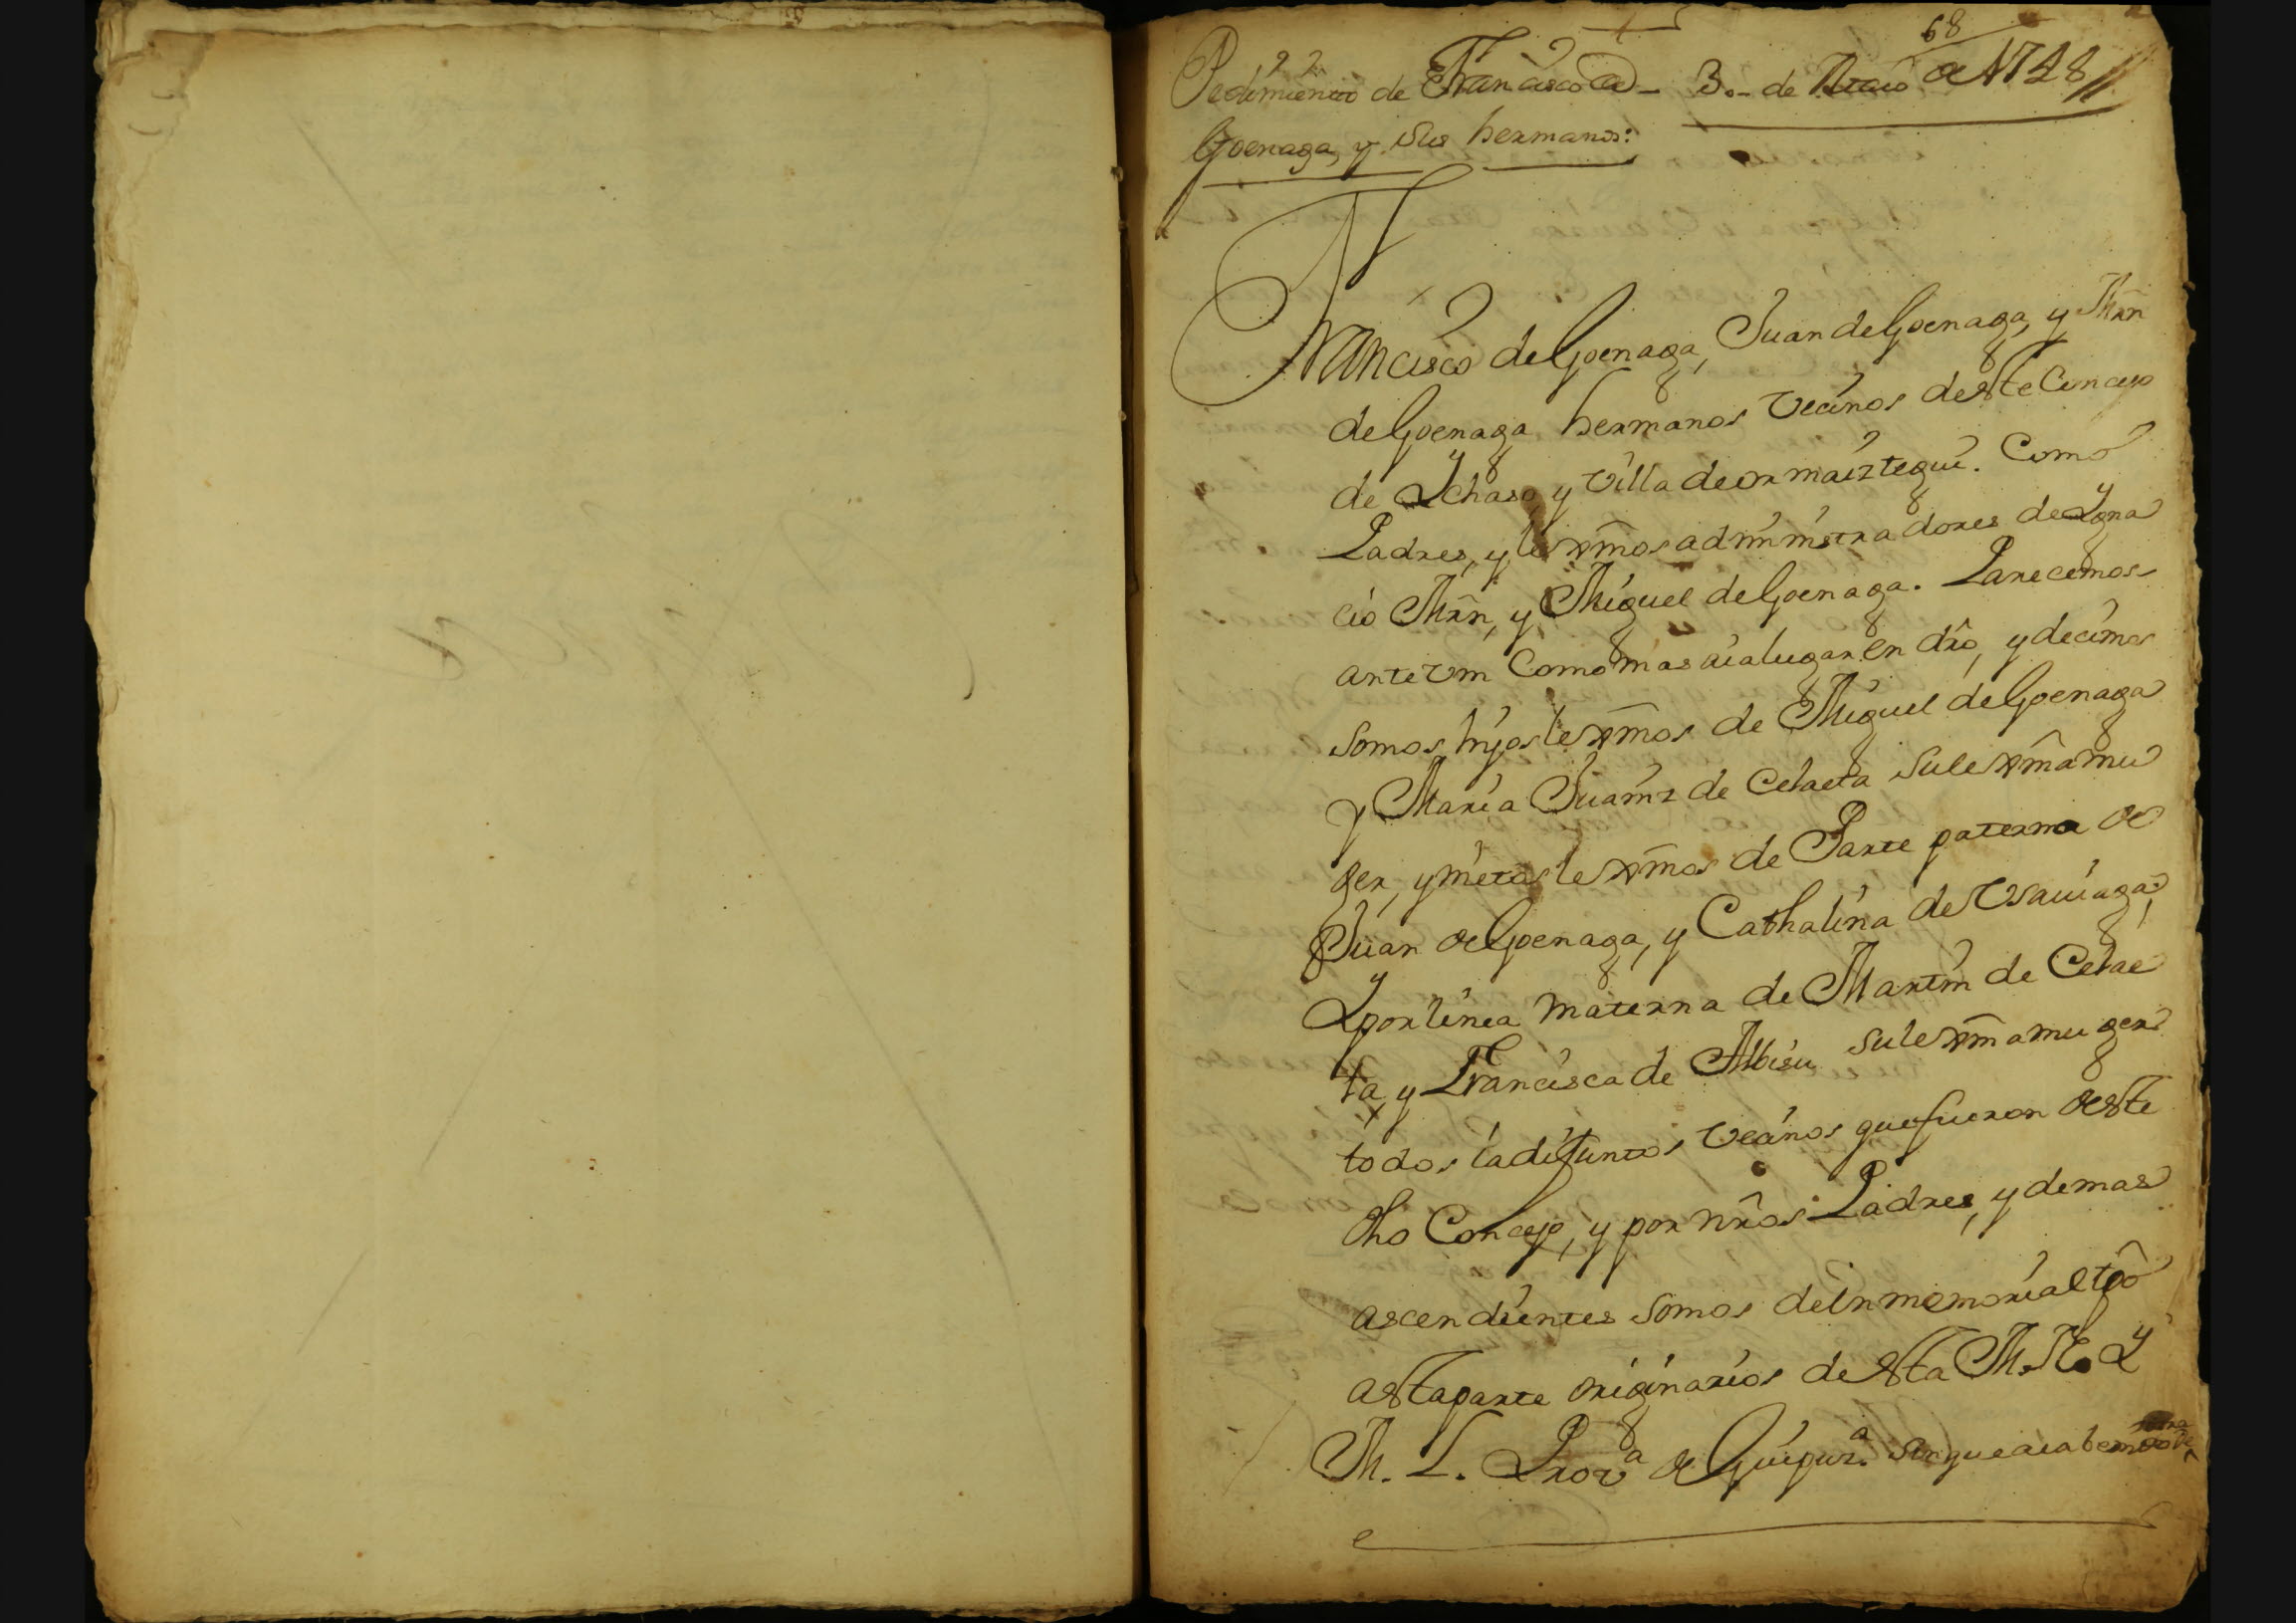 68
Pedimiento de Francisco de - 3.. de Maio de 1728
Goenaga, y Sus hermanos:
Francisco de Goenaga, Juan de Goenaga, y Mrn
de Goenaga hermanos Vecinos deste Concejo
de Ychaso, y Villa de ormaiztegui. Como
Padres, y lexmos administradores de Ygna
cio Mrn, y Miguel de Goenaga. Parecemos
ante Vm Como mas aia lugar en dro, y decimos
Somos hijos lexmos de Miguel de Goenaga
y Maria Juaniz de Celaeta Su lexma mu
ger, y nietos lexmos de Parte paterna de
Juan de Goenaga, y Cathalina de Vsauiaga,
Y por linea Materna de Martin de Celae
ta, y Francisca de Albisu Su lexma muger
todos ia difuntos Vecinos que fueron deste
dho Concejo, y por nros Padres, y demas
ascendientes Somos de inmemorial tpo
asta parte originarios desta M. N. Y
M. L. Prova de Guipuza. Sin que aia